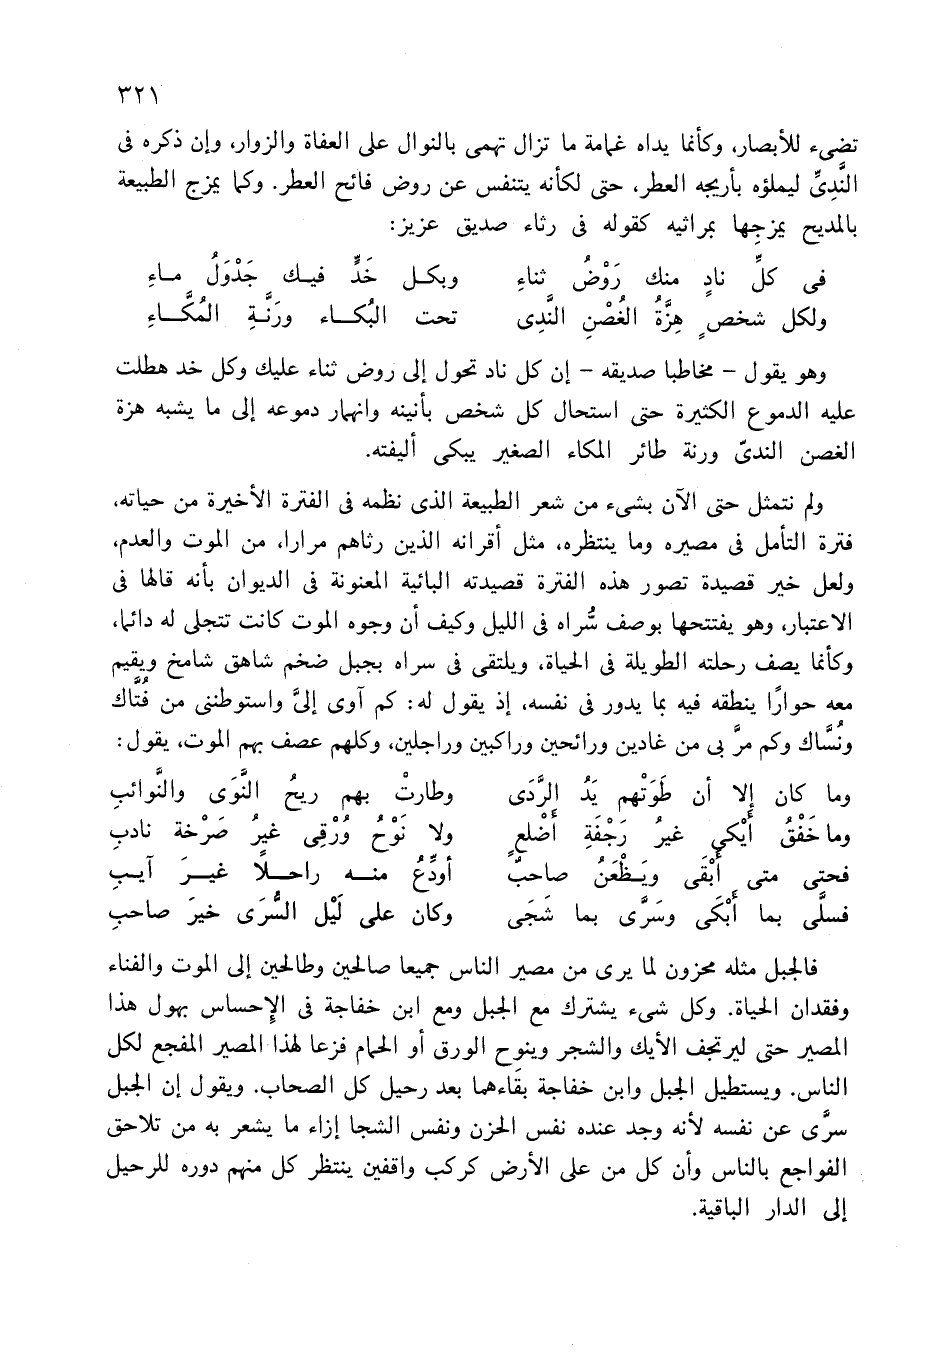 ٣٢١
تضىء للأبصار، وكأنما يداه غمامة ما تزال تهمى بالنوال على العفاة والزوار، وإن ذكره فى
النَّدِىِّ ليملؤه بأريجه العطر، حتى لكأنه يتنفس عن روض فائح العطر. وكما يمزج الطبيعة
بالمديح يمزجها بمراثيه كقوله فى رثاء صديق عزيز:
فى كلِّ نادٍ منك رَوْضُ ثناءِ وبكل خَدٍّ فيك جَدْوَلُ ماءِ
ولكل شخصٍ هِزَّةُ الغُصْنِ النَّدِى تحت البُكاء ورَنَّةِ المُكَّاءِ
وهو يقول - مخاطبا صديقه - إن كل ناد تحول إلى روض ثناء عليك وكل خد هطلت
عليه الدموع الكثيرة حتى استحال كل شخص بأنينه وانهمار دموعه إلى ما يشبه هزة
الغصن الندىّ ورنة طائر المكاء الصغير يبكى أليفته.
ولم نتمثل حتى الآن بشىء من شعر الطبيعة الذى نظمه فى الفترة الأخيرة من حياته،
فترة التأمل فى مصيره وما ينتظره، مثل أقرانه الذين رثاهم مرارا، من الموت والعدم،
ولعل خير قصيدة تصور هذه الفترة قصيدته البائية المعنونة فى الديوان بأنه قالها فى
الاعتبار، وهو يفتتحها بوصف سُّراه فى الليل وكيف أن وجوه الموت كانت تتجلى له دائما،
وكأنما يصف رحلته الطويلة فى الحياة، ويلتقى فى سراه بجبل ضخم شاهق شامخ ويقيم
معه حوارًا ينطقه فيه بما يدور فى نفسه، إذ يقول له: كم آوى إلىَّ واستوطننى من فُتَّاك
ونُسَّاك وكم مرَّ بى من غادين ورائحين وراكبين وراجلين، وكلهم عصف بهم الموت، يقول:
وما كان إلا أن طَوَتْهم يَدُ الرَّدَى وطارتْ بهم ريحُ النَّوَى والنَّوائبِ
وما خَفْقُ أَيْكي غيرُ رَجْفَةِ أَضْلعٍ ولا نَوْحُ وُرْقِى غيرُ صَرْخة نادبِ
فحتى متى أَبْقَى ويَظْعَنُ صاحبٌ أودِّعُ منه راحلاً غيرَ آيبِ
فسلَّى بما أَبْكَى وسَرَّى بما شَجَى وكان على لَيْل السُّرَى خيرَ صاحبِ
فالجبل مثله محزون لما يرى من مصير الناس جميعا صالحين وطالحين إلى الموت والفناء
وفقدان الحياة. وكل شىء يشترك مع الجبل ومع ابن خفاجة فى الإحساس بهول هذا
المصير حتى ليرتجف الأيك والشجر وينوح الورق أو الحمام فزعا لهذا المصير المفجع لكل
الناس. ويستطيل الجبل وابن خفاجة بقاءهما بعد رحيل كل الصحاب. ويقول إن الجبل
سرَّى عن نفسه لأنه وجد عنده نفس الحزن ونفس الشجا إزاء ما يشعر به من تلاحق
الفواجع بالناس وأن كل من على الأرض كركب واقفين ينتظر كل منهم دوره للرحيل
إلى الدار الباقية.